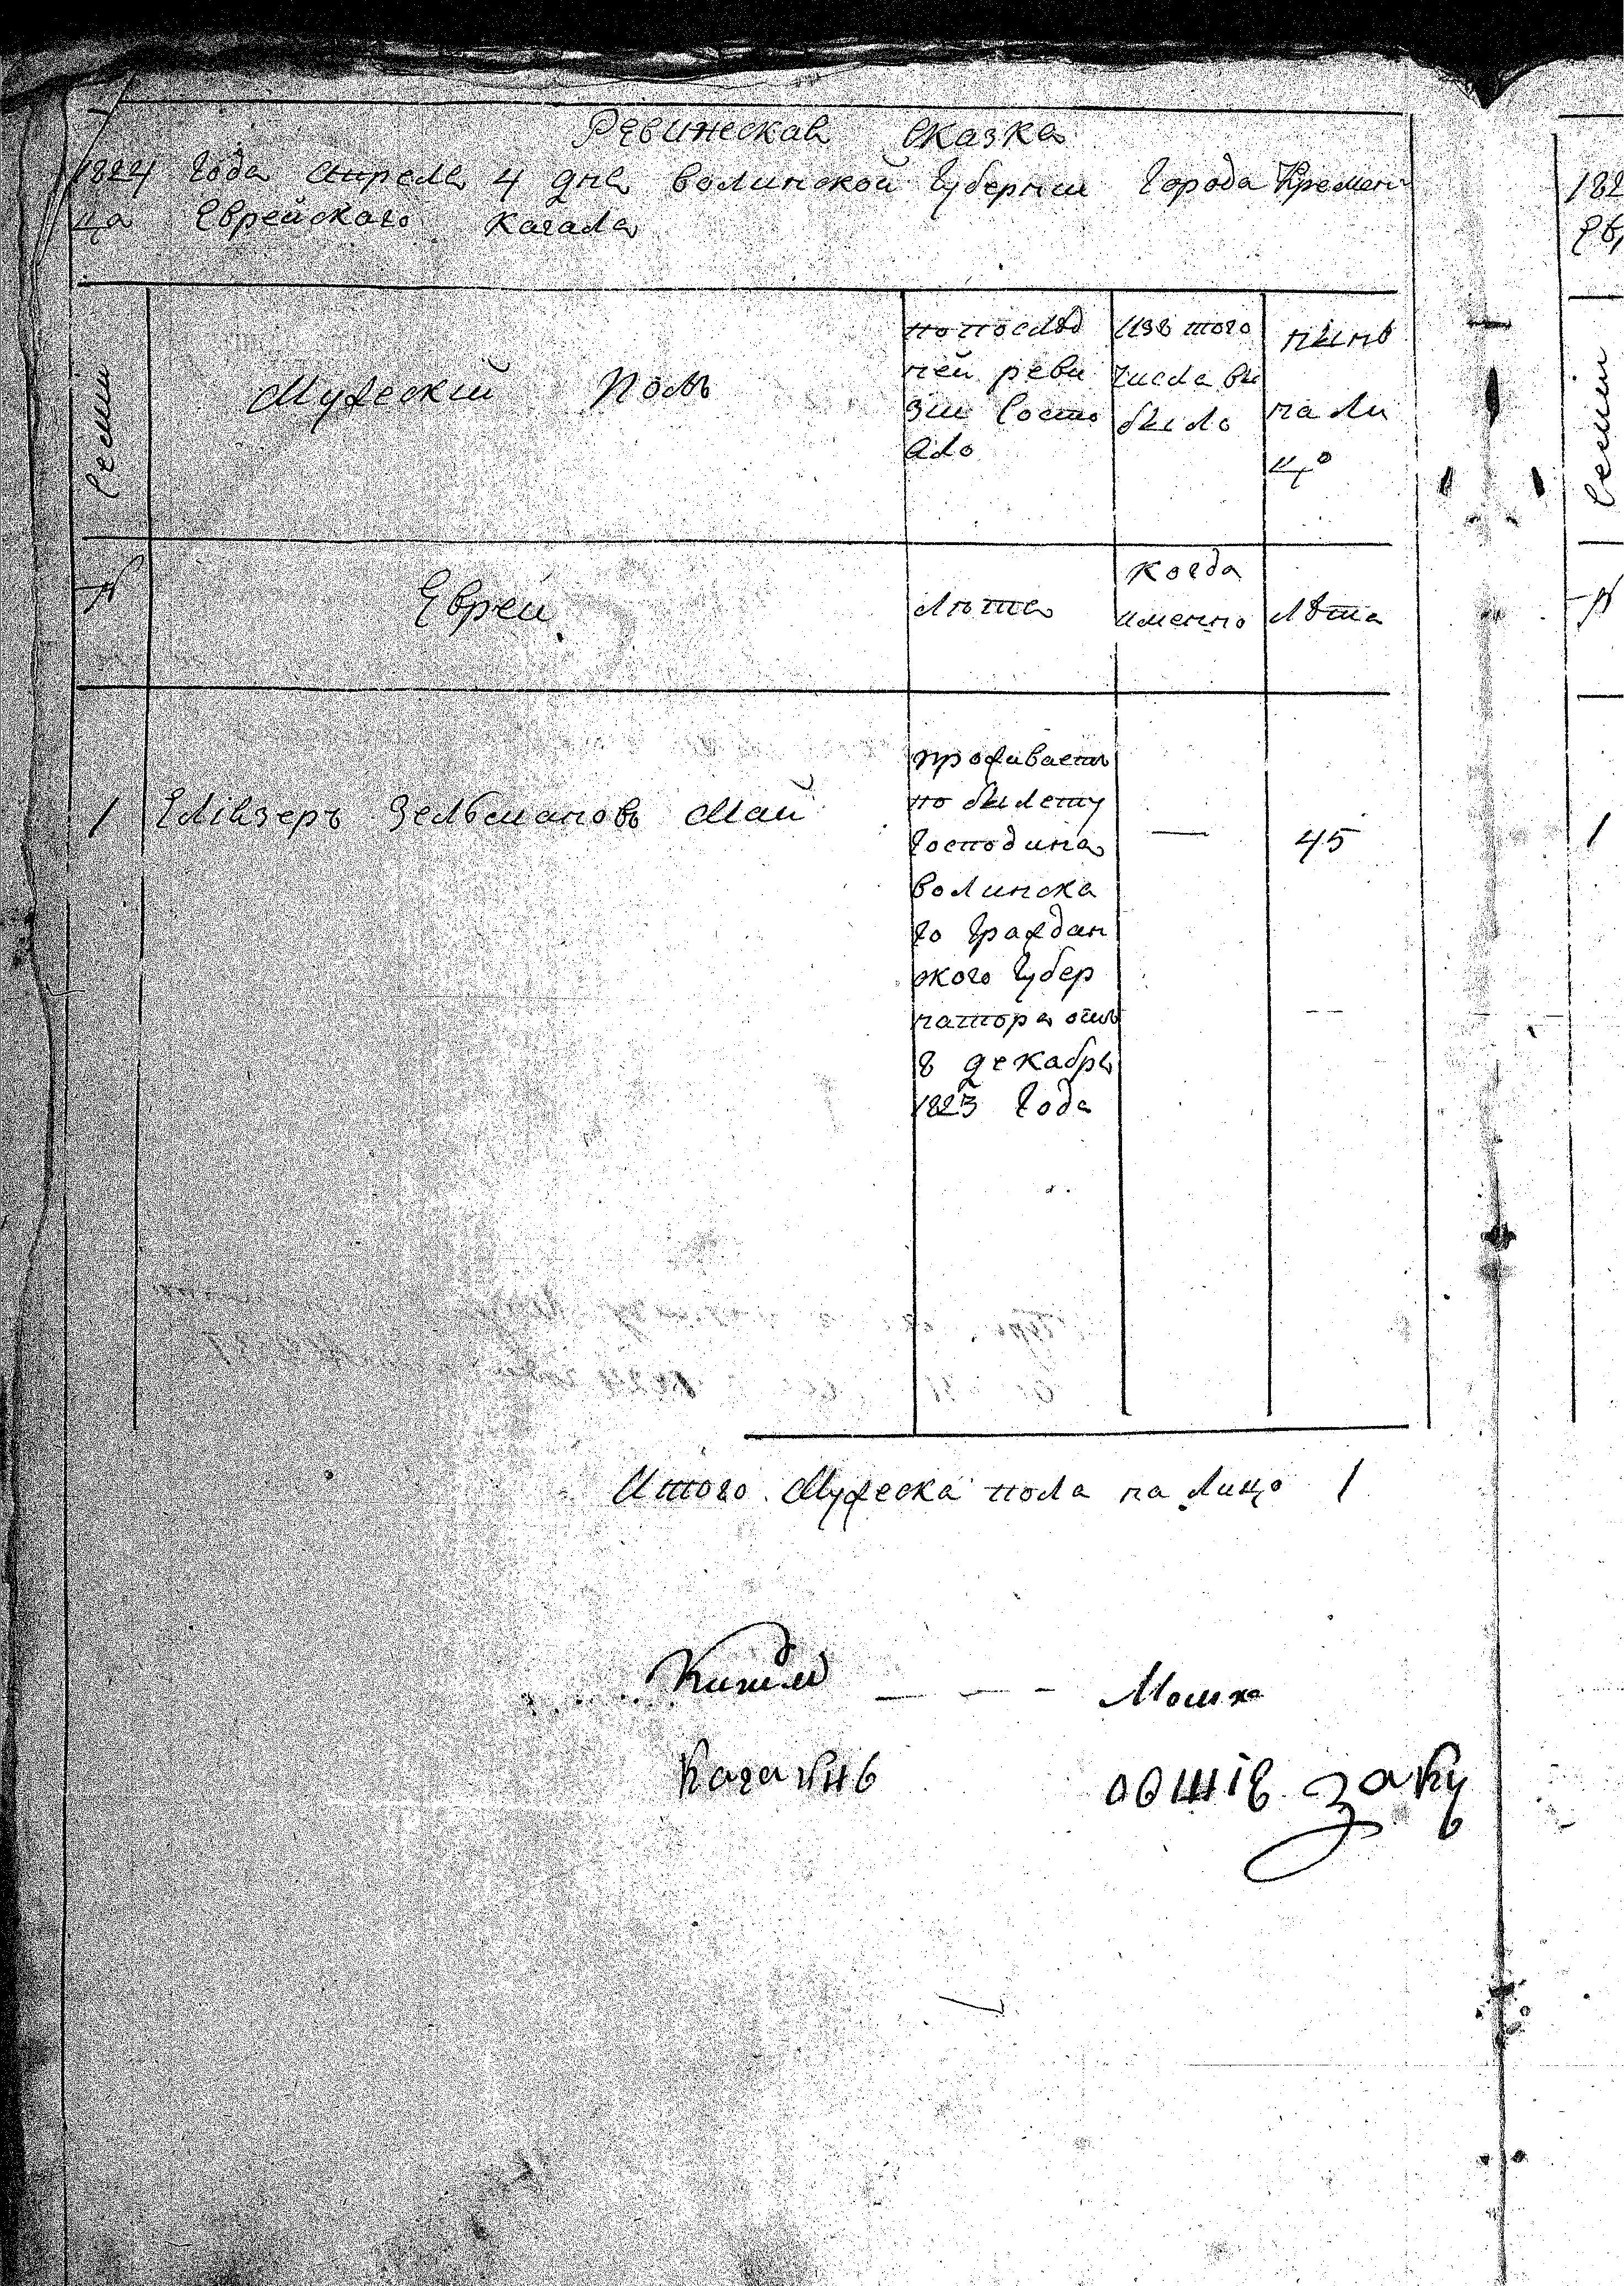 Ревижеская Сказка
1824 Года Апреля 4 дня Волинской Губернии Города Кремен
ца Еврейского Кагала
Семии
Мужеский Полъ
по послѣд
ней реви
зии Состо
яло
Изъ того
числа вы
было
нынѣ
на ли
цо
№
Евреи
Лѣта
Когда
именно
Лѣта
1 Еліазеръ Зельмановъ Май
проживаетъ
по былету
Господина
Волинска
го Граждан
ского Губер
натора отъ
8 декабря
1823 Года
—
45
Итого Мужеска пола на Лицо 1
Мошко
182
Ев
Семии
№
1